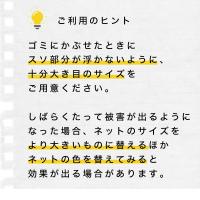 ご利用のヒント
ゴミにかぶせたときに
スソ部分が浮かないように、
十分大き目のサイズを
ご用意ください。
しばらくたって被害が出るように
なった場合、ネットのサイズを
より大きいものに替えるほか
ネットの色を替えてみると
効果が出る場合があります。